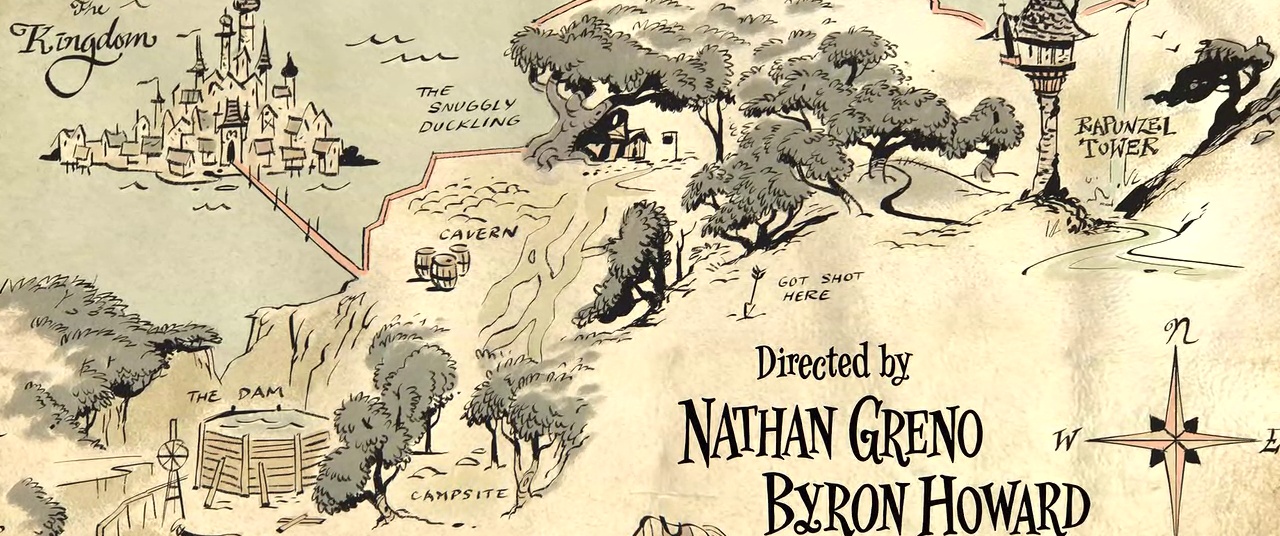 The
Kingdom
THE
SNUGGLY
DUCKLING
RAPUNZEL
TOWER
CAVERN
GOT SHOT
HERE
THE DAM
CAMPSITE
Directed by
NATHAN GRENO
BYRON HOWARD
N
W
E